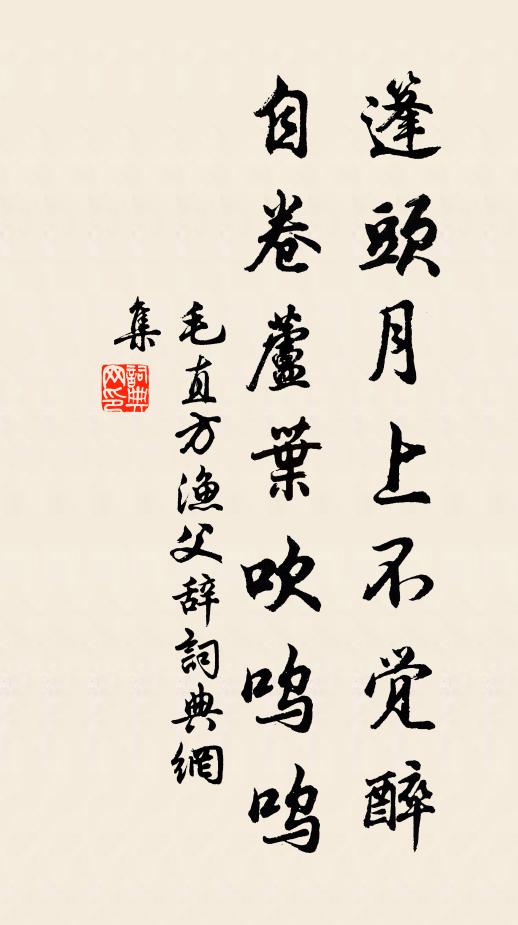 蓬頭月上不觉醉
自卷蘆葉吹鸣鸣
毛直方渔父辞詞典網
集
詞典
网印